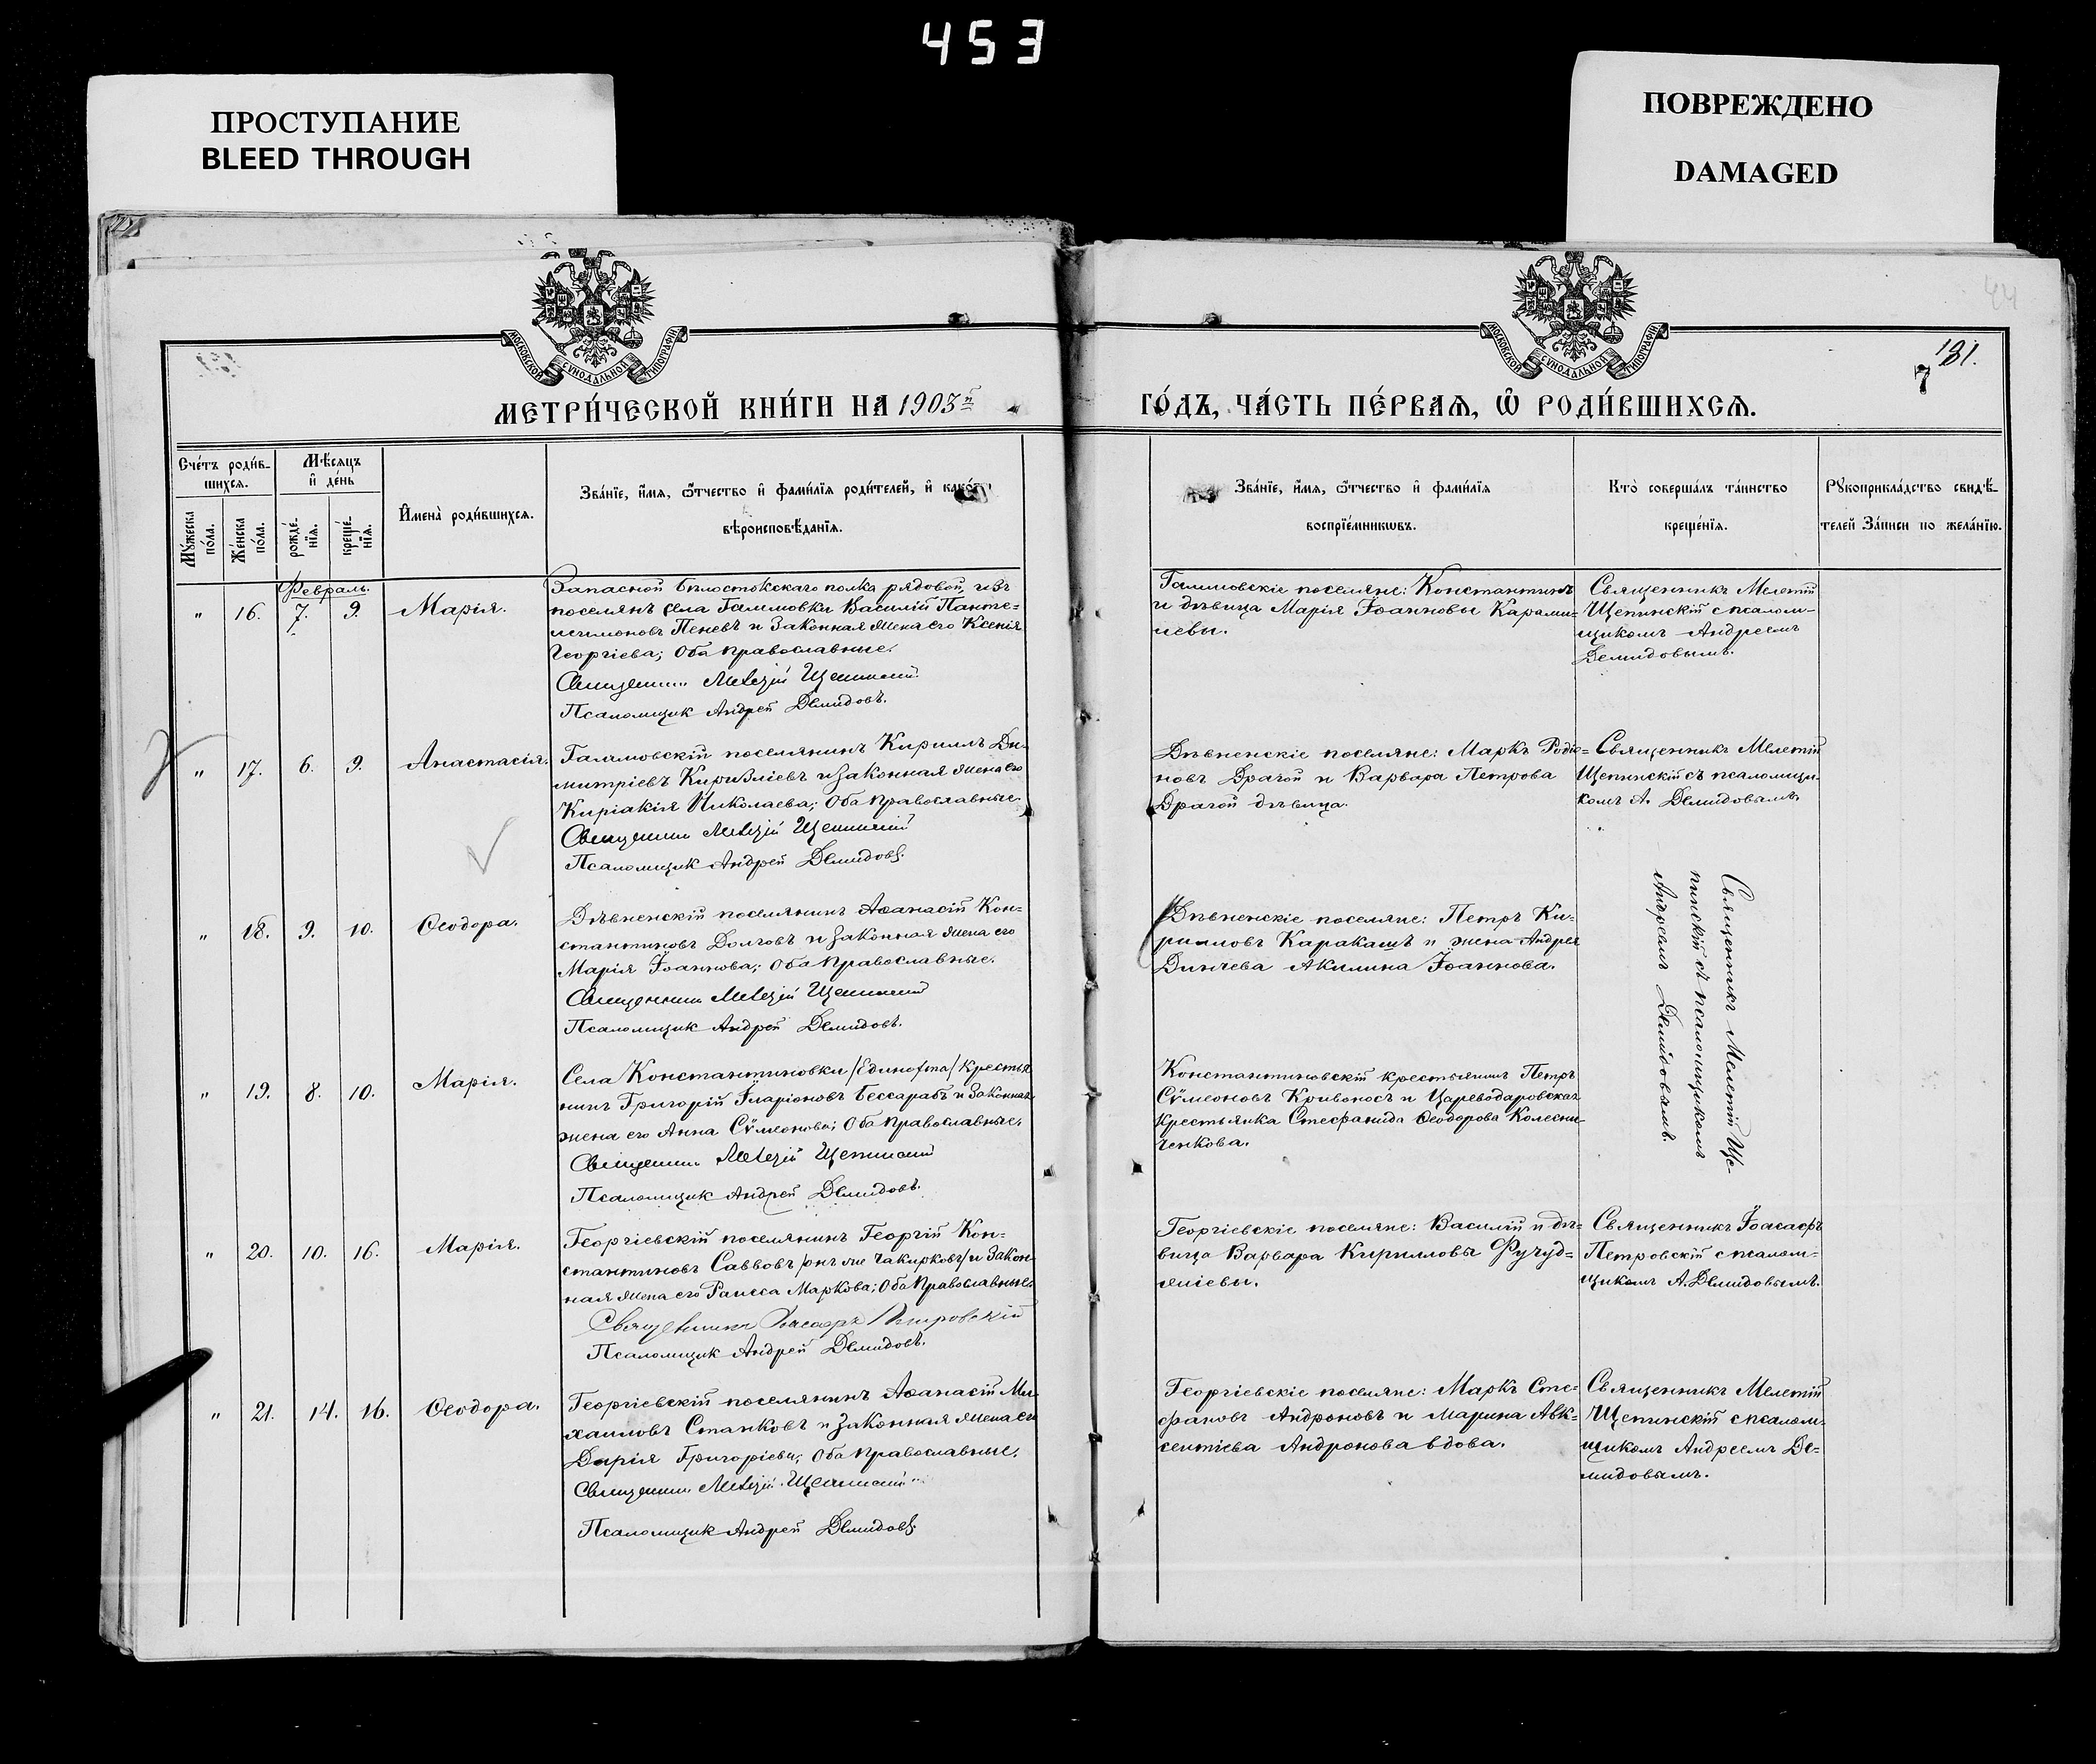 453
ПРОСТУПАНИЕ
BLEED THROUGH
ПОВРЕЖДЕНО
DAMAGED
44
МОСКОВСКОЙ СѴНОДАЛЬНОЙ ТИПОГРАФІИ
МОСКОВСКОЙ СѴНОДАЛЬНОЙ ТИПОГРАФІИ
181.
7
МЕТРИ́ЧЕСКОЙ КНИ́ГИ НА 1903й
ГО́ДЪ, ЧА́СТЬ ПЕ́РВАѦ, Ѽ РОДИ́ВШИХСѦ.
Сче́тъ роди́в-
шихсѧ.
Мѣ́сѧцъ
и҆ де́нь
Мꙋ́жеска по́ла.
Же́нска по́ла.
рожде́-
нїѧ.
креще́-
нїѧ.
И҆мена̀ роди́вшихсѧ.
Зва́нїе, и҆́мѧ, ѻ҆́тчество и҆ фами́лїѧ роди́телей, и҆
вѣроисповѣ́данїѧ.
Зва́нїе, и҆́мѧ, ѻ҆́тчество и҆ фами́лїѧ
воспрїе́мникѡвъ.
Кто̀ соверша́лъ та́инство
креще́нїѧ.
Рꙋкоприкла́дство свидѣ́-
телей за́писи по жела́нїю.
Февраль.
" 16. 7. 9. Марія.
Запасной Бѣлостокскаго полка рядовой, изъ
поселянъ села Галимовки Василій Панте-
леимоновъ Пеневъ и законная жена его Ксенія
Георгіева; оба православные.
Священникъ Мелетій Щепинскій
Псаломщик Андрей Демидовъ.
Галимовскіе поселяне: Константинъ
и дѣвица Марія Іоанновы Карами-
левы.
Священникъ Мелетій
Щепинскій с псалом-
щикомъ Андреемъ
Демидовымъ.
" 17. 6. 9. Анастасія.
Галимовскій поселянинъ Кириллъ Ди-
митріевъ и законная жена его
Киріакія Николаева; оба православные
Священникъ Мелетій Щепинскій
Псаломщик Андрей Демидовъ.
Дѣвненскіе поселяне: Маркъ Родіо-
новъ Драгой и Варвара Петрова
Драгой дѣвица.
Священникъ Мелетій
Щепинскій съ псаломщи-
комъ А. Демидовымъ.
" 18. 9. 10. Ѳеодора.
Дѣвненскій поселянинъ Аѳанасій Кон-
стантиновъ Долговъ и законная жена его
Марія Іоаннова; оба православные.
Священникъ Мелетій Щепинскій
Псаломщик Андрей Демидовъ.
Дѣвненскіе поселяне: Петръ Ки-
рилловъ Каракашъ и жена Андрея
Динчева Акилина Іоаннова.
Священникъ Мелетій Ще-
пинскій съ псаломщикомъ
Андреемъ Демидовымъ.
" 19. 8. 10. Марія.
Села Константиновки /Единохта/ крестья-
нинъ Григорій Иларіоновъ Бессарабъ и законная
жена его Анна Сѵмеонова; оба православные.
Священникъ Мелетій Щепинскій
Псаломщик Андрей Демидовъ.
Константиновскій крестьянинъ Петръ
Сѵмеоновъ Кривоносъ и Цареводаровская
крестьянка Стефанида Ѳеодорова Колесни-
ченкова.
" 20. 10. 16. Марія.
Георгіевскій поселянинъ Георгій Кон-
стантиновъ Саввовъ /онъ же Чакирковъ/ и закон-
ная жена его Раисса Маркова; оба православные
Священникъ Іоасафъ Петровскій
Псаломщик Андрей Демидовъ.
Георгіевскіе поселяне: Василій и дѣ-
вица Варвара Кирилловы Фучуд-
жіевы.
Священникъ Іоасафъ
Петровскій с псалом-
щикомъ А. Демидовымъ.
" 21. 14. 16. Ѳеодора.
Георгіевскій поселянинъ Аѳанасій Ми-
хаиловъ Станковъ и законная жена его
Дарія Григоріева; оба православные.
Священникъ Мелетій Щепинскій
Псаломщик Андрей Демидовъ.
Георгіевскіе поселяне: Маркъ Сте-
фановъ Андроновъ и Марина Авк-
сентіева Андронова вдова.
Священникъ Мелетій
Щепинскій с псалом-
щикомъ Андреемъ Де-
мидовымъ.